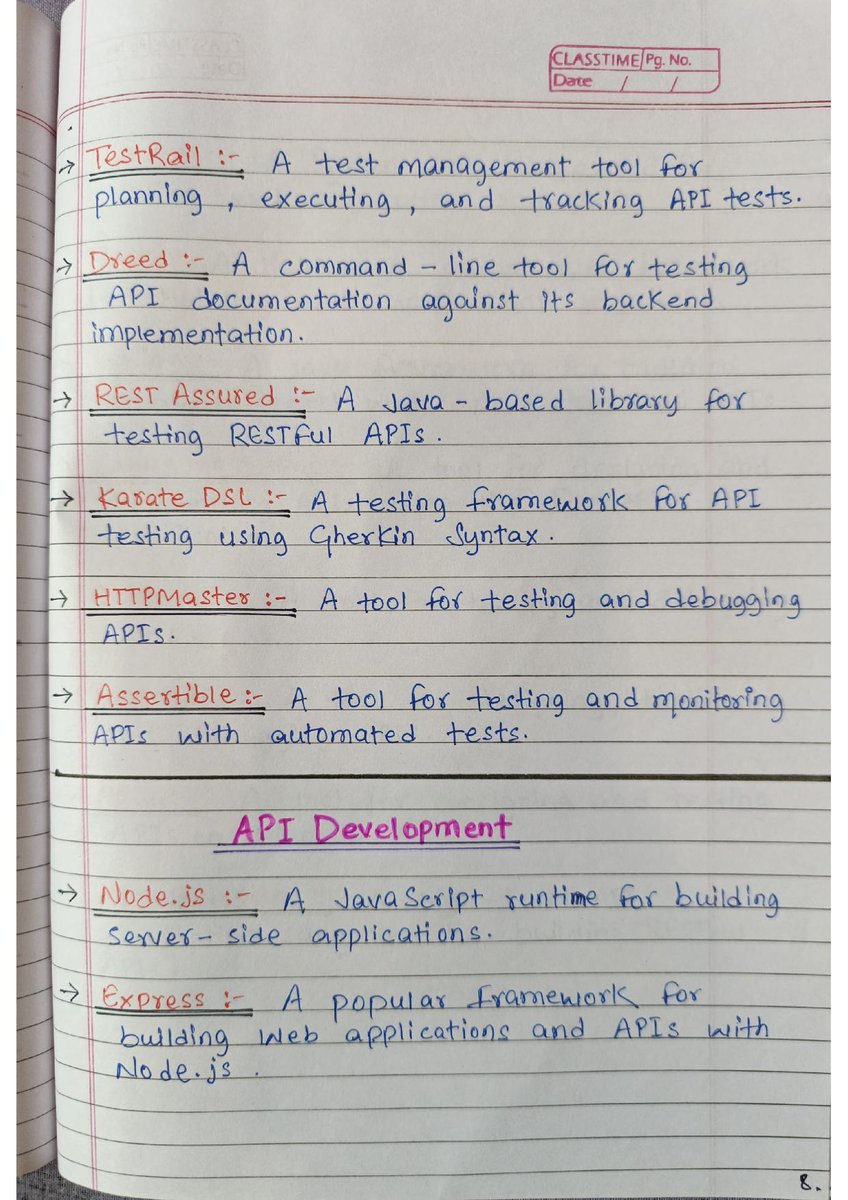 CLASSTIME Pg. No.
Date / /
→ TestRail :- A test management tool for
planning , executing , and tracking API tests.
→ Dreed :- A command - line tool for testing
API documentation against its backend
implementation.
→ REST Assured :- A Java - based library for
testing RESTful APIs .
→ Karate DSL :- A testing framework for API
testing using Gherkin Syntax .
→ HTTPMaster :- A tool for testing and debugging
APIs.
→ Assertible :- A tool for testing and monitoring
APIs with automated tests.
API Development
→ Node.js :- A JavaScript runtime for building
server - side applications.
→ Express :- A popular framework for
building web applications and APIs with
Node.js .
8.